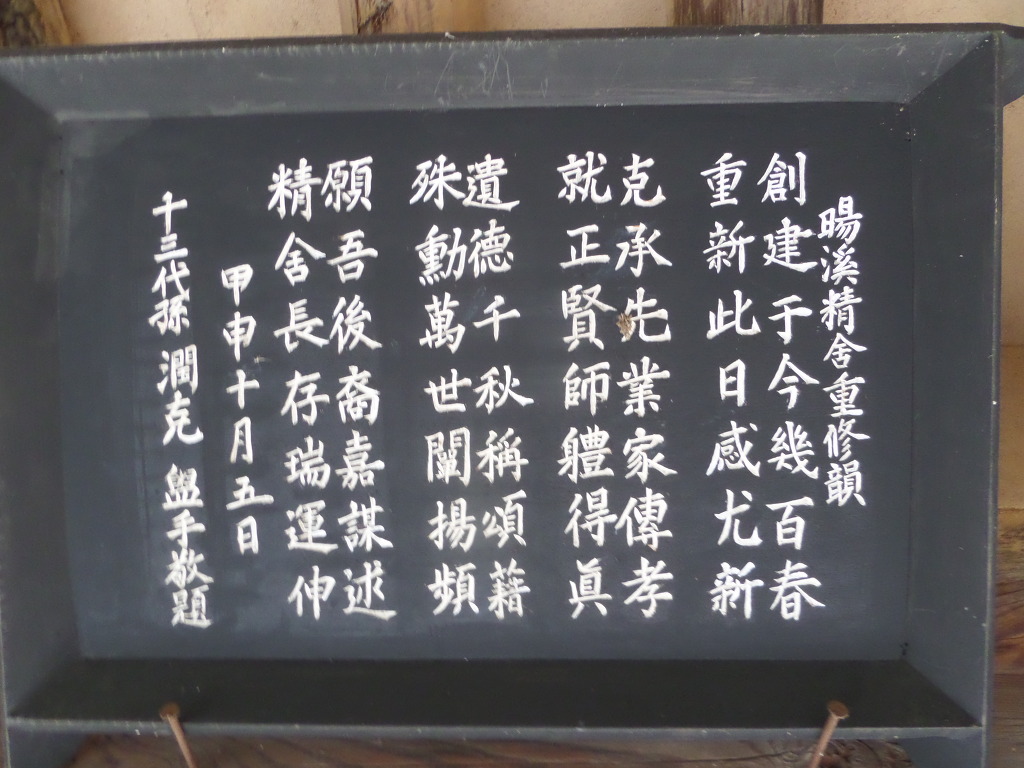 暘溪精舍重修韻
創建于今幾百春
重新此日感尤新
克承先業家傳孝
就正賢師軆得眞
遺德千秋稱頌藉
殊勳萬世闡揚頻
願吾後裔嘉謀逑
精舍長存瑞運伸
甲申十月五日
十三代孫 潤克 盥手敬題